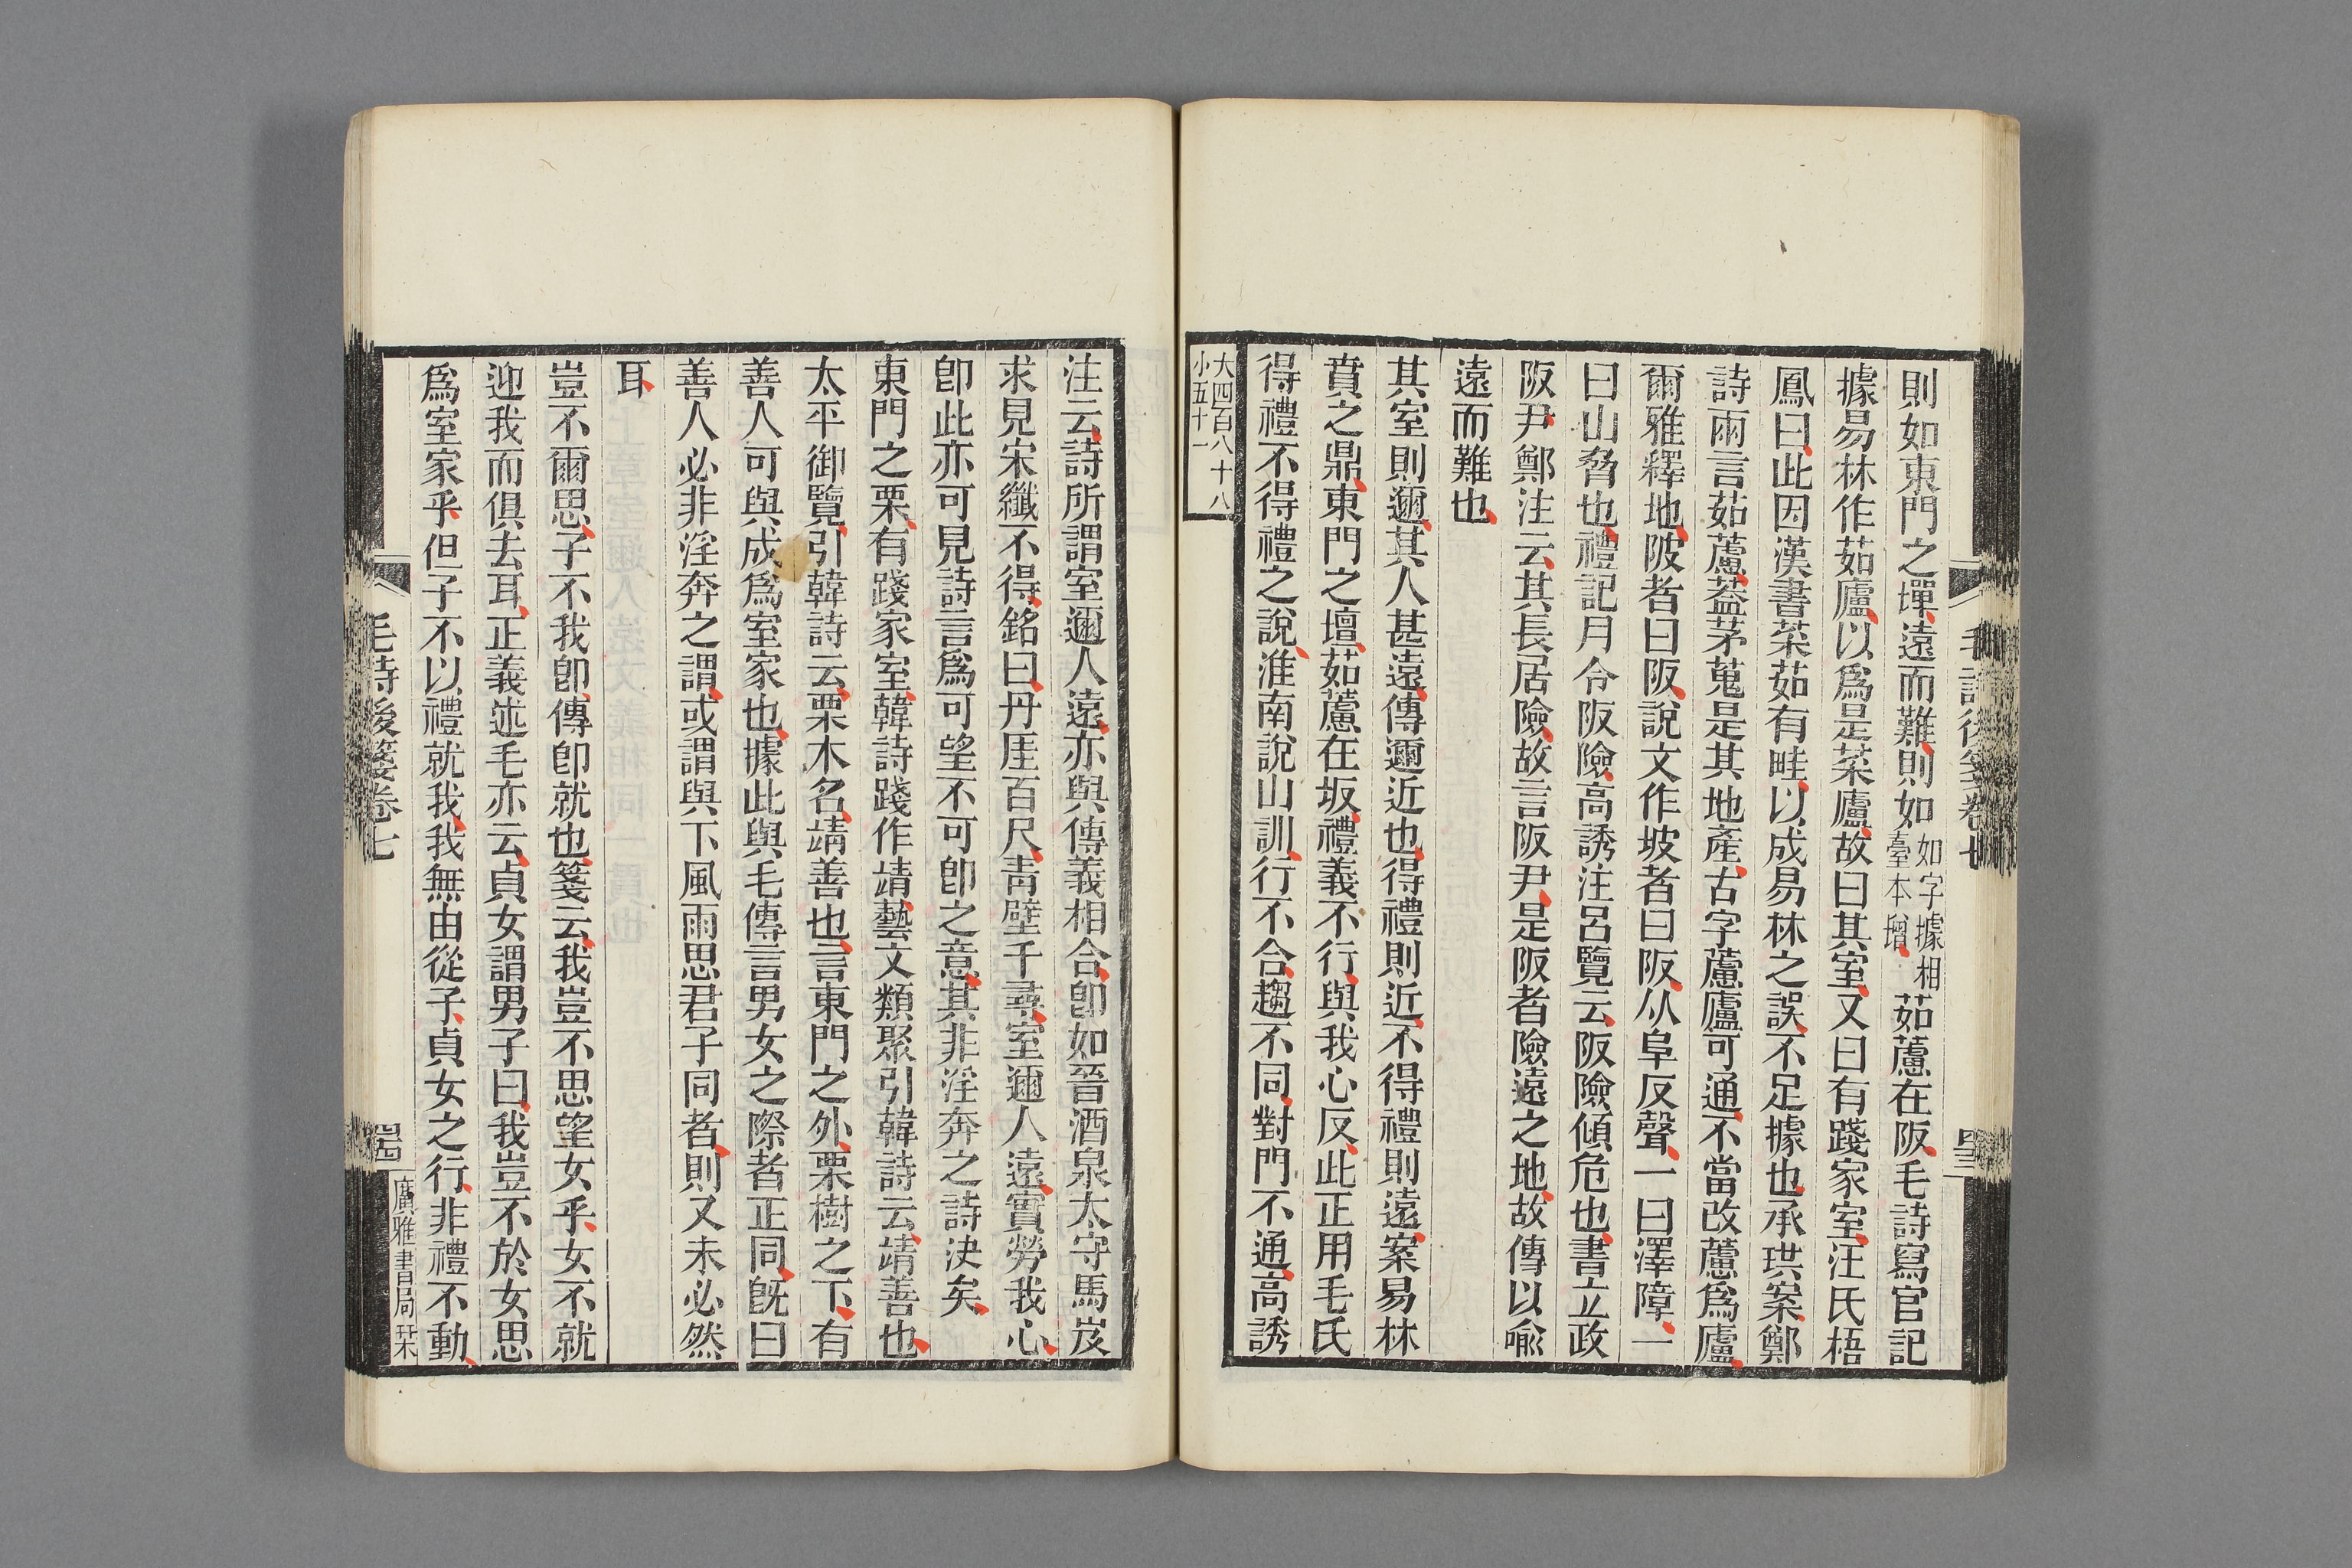 則如東門之墠遠而難則如如字據相臺本增茹藘在阪毛詩寫官記
據易林作茹廬以爲是菜廬故曰其室又曰有踐家室汪氏梧
鳳曰此因漢書菜茹有畦以成易林之誤不足據也承珙案鄭
詩兩言茹藘葢茅蒐是其地產古字藘廬可通不當改藘爲廬
爾雅釋地陂者曰阪說文作坡者曰阪从阜反聲一曰澤障一
曰山脅也禮記月令阪險高誘注呂覽云阪險傾危也書立政
阪尹鄭注云其長居險故言阪尹是阪者險遠之地故傳以喻
遠而難也
其室則邇其人甚遠傳邇近也得禮則近不得禮則遠案易林
賁之鼎東門之壇茹藘在坂禮義不行與我心反此正用毛氏
得禮不得禮之說淮南說山訓行不合趨不同對門不通高誘
大四百八十八
小五十一
毛詩後箋卷七
注云詩所謂室邇人遠亦與傳義相合卽如晉酒泉太守馬岌
求見宋纖不得銘曰丹厓百尺靑壁千尋室邇人遠實勞我心
卽此亦可見詩言爲可望不可卽之意其非淫奔之詩決矣
東門之栗有踐家室韓詩踐作靖藝文類聚引韓詩云靖善也
太平御覽引韓詩云栗木名靖善也言東門之外栗樹之下有
善人可與成爲室家也據此與毛傳言男女之際者正同旣曰
善人必非淫奔之謂或謂與下風雨思君子同者則又未必然
耳
豈不爾思子不我卽傳卽就也箋云我豈不思望女乎女不就
迎我而俱去耳正義述毛亦云貞女謂男子曰我豈不於女思
爲室家乎但子不以禮就我我無由從子貞女之行非禮不動
毛詩後箋卷七
廣雅書局栞